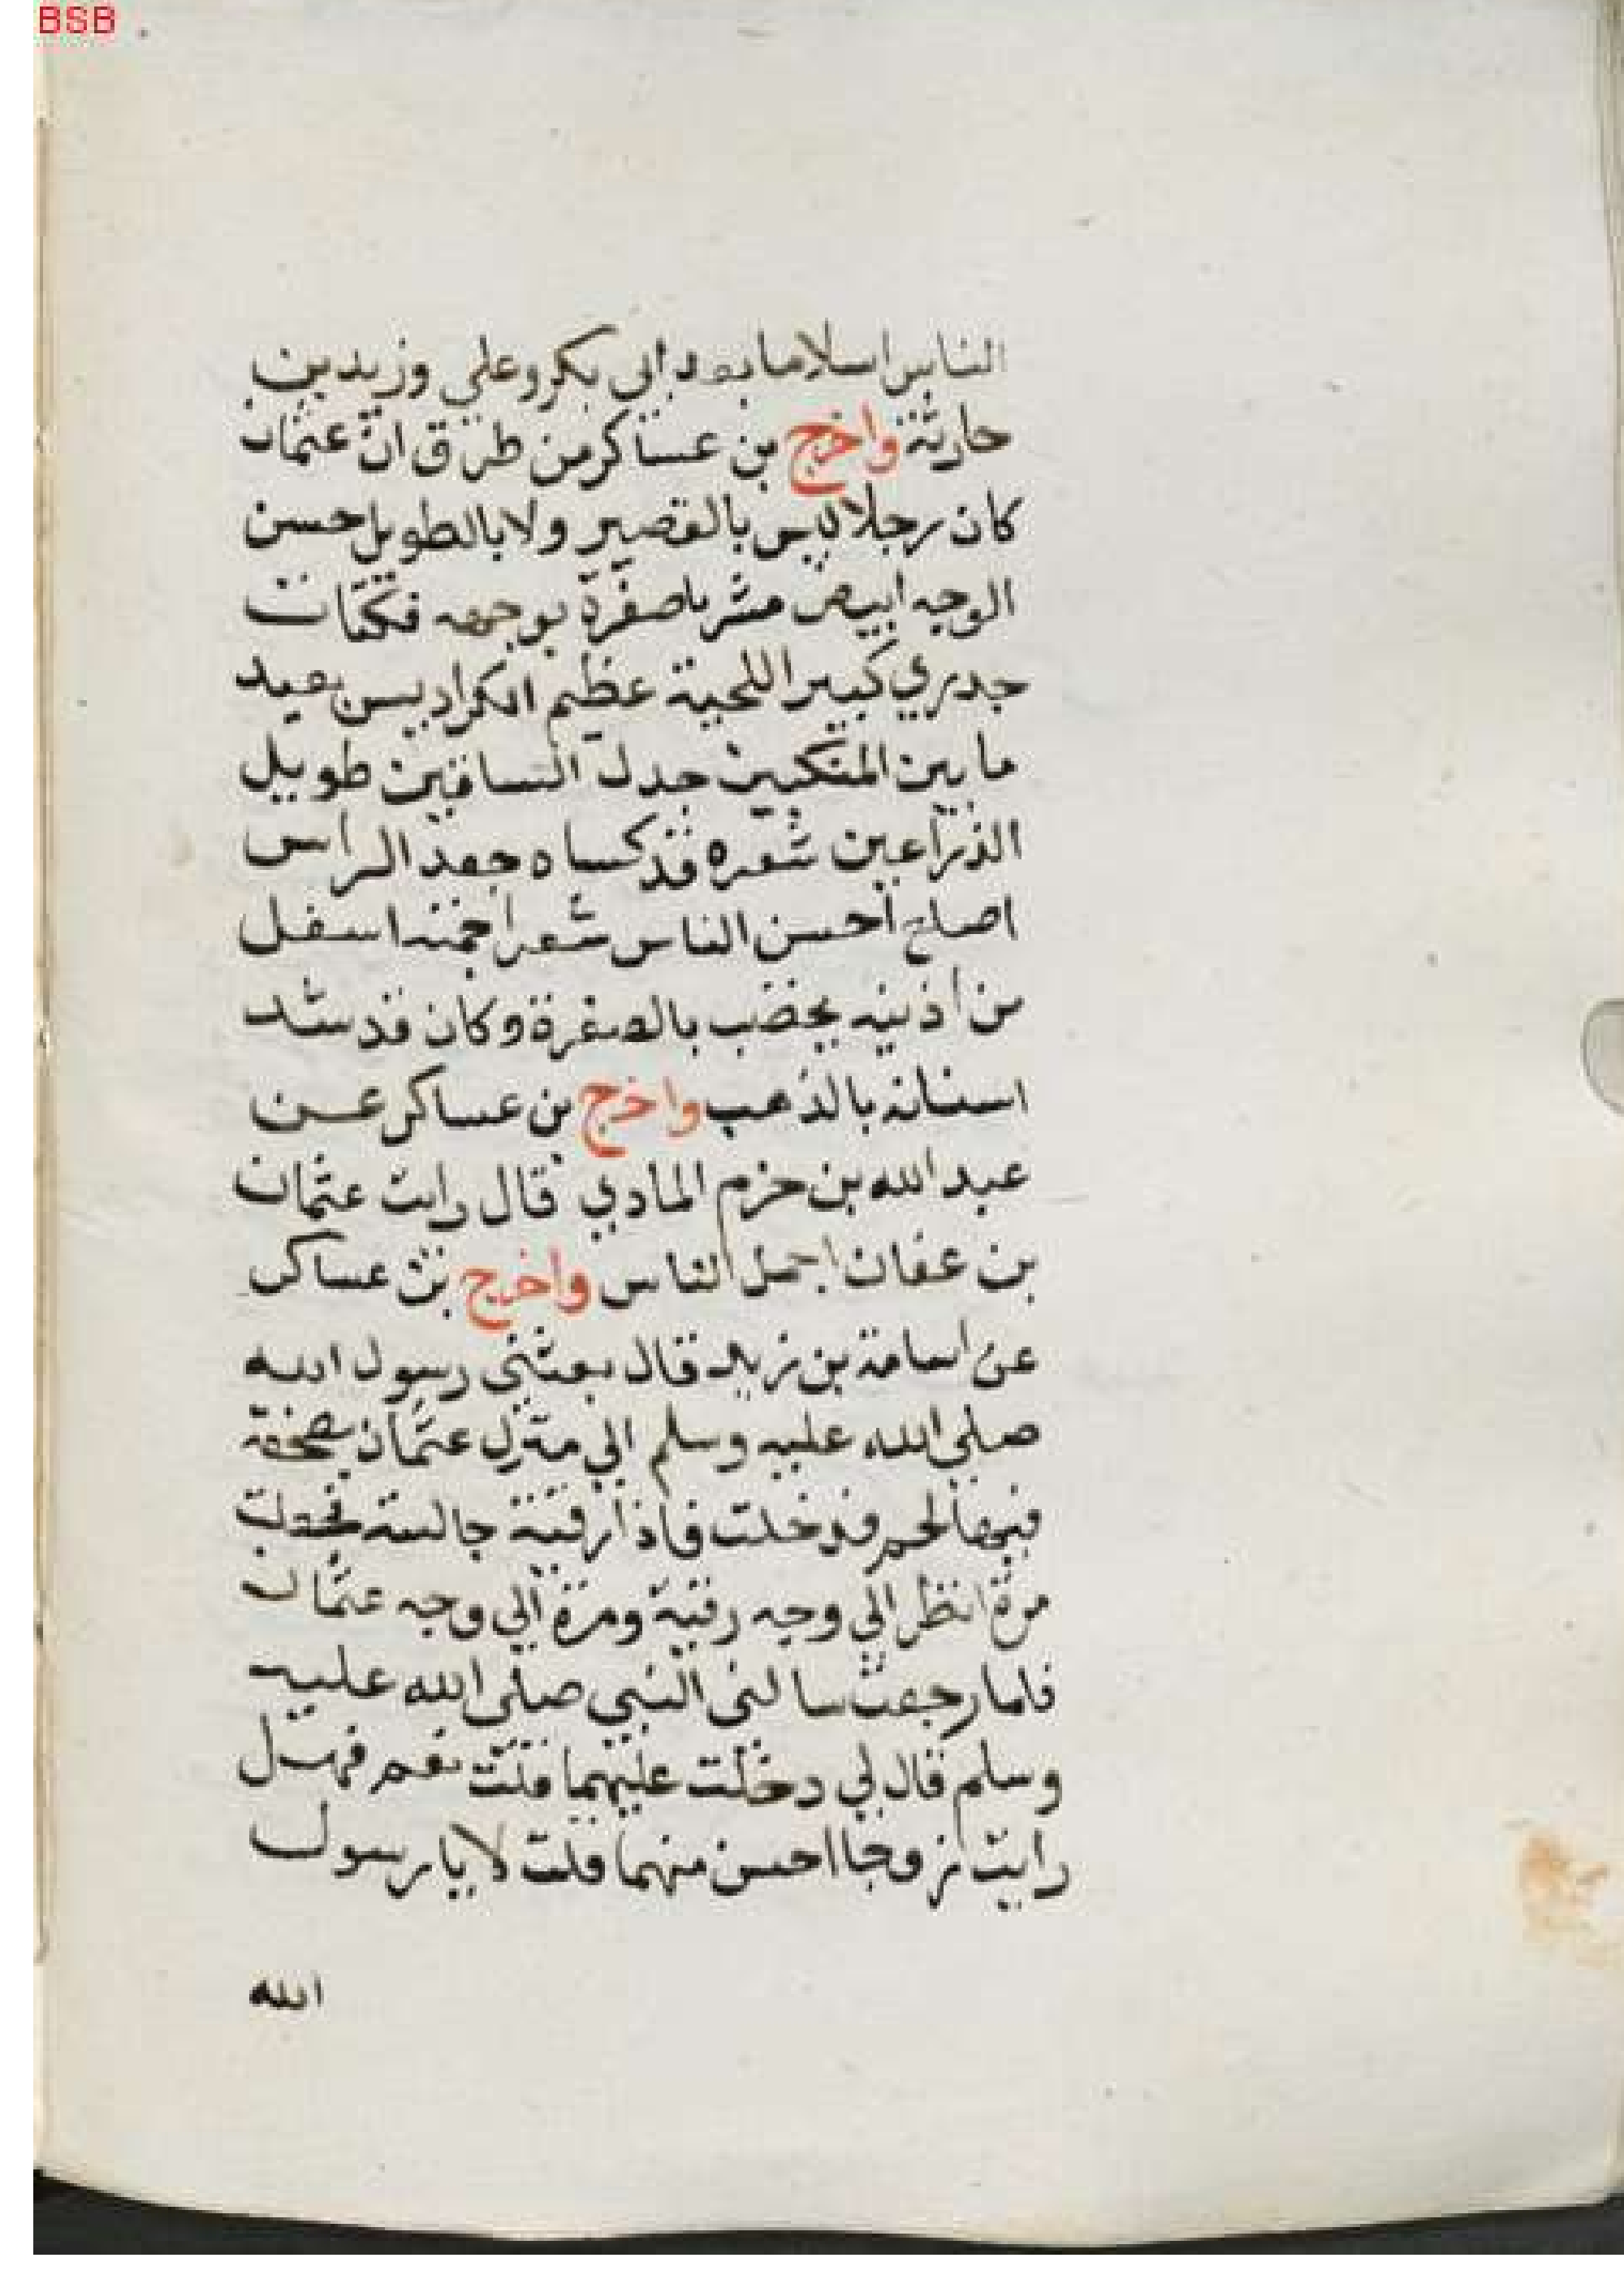 BSB
الناس اسلاما بعد ابي بكر وعلي وزيد بن
حارثة واخرج بن عساكر من طرق انّ عثمان
كان رجلا ليس بالقصير ولا بالطويل حسن
الوجه ابيض مشربا صفرة بوجهه نكتات
جدري كبير اللحية عظيم الكراديس بعيد
ما بين المنكبين جدل الساقين طويل
الذراعين شعره قد كساه جعد الراس
اصلع احسن الناس شعرا جمته اسفل
من اذنيه يخضب بالصفرة وكان قد شد
اسنانه بالذهب واخرج بن عساكر عن
عبد الله بن حزم المادبي قال رايت عثمان
بن عفان اجمل الناس واخرج بن عساكر
عن اسامة بن زيد قال بعثني رسول الله
صلي الله عليه وسلم الي منزل عثمان بصحفة
فيها لحم فدخلت فاذا رقية جالسة فجعلت
مرة انظر الي وجه رقية ومرة الي وجه عثمان
فلما رجعت سالني النبي صلي الله عليه
وسلم قال لي دخلت عليهما قلت نعم فهل
رايت زوجا احسن منهما قلت لا يا رسول
الله